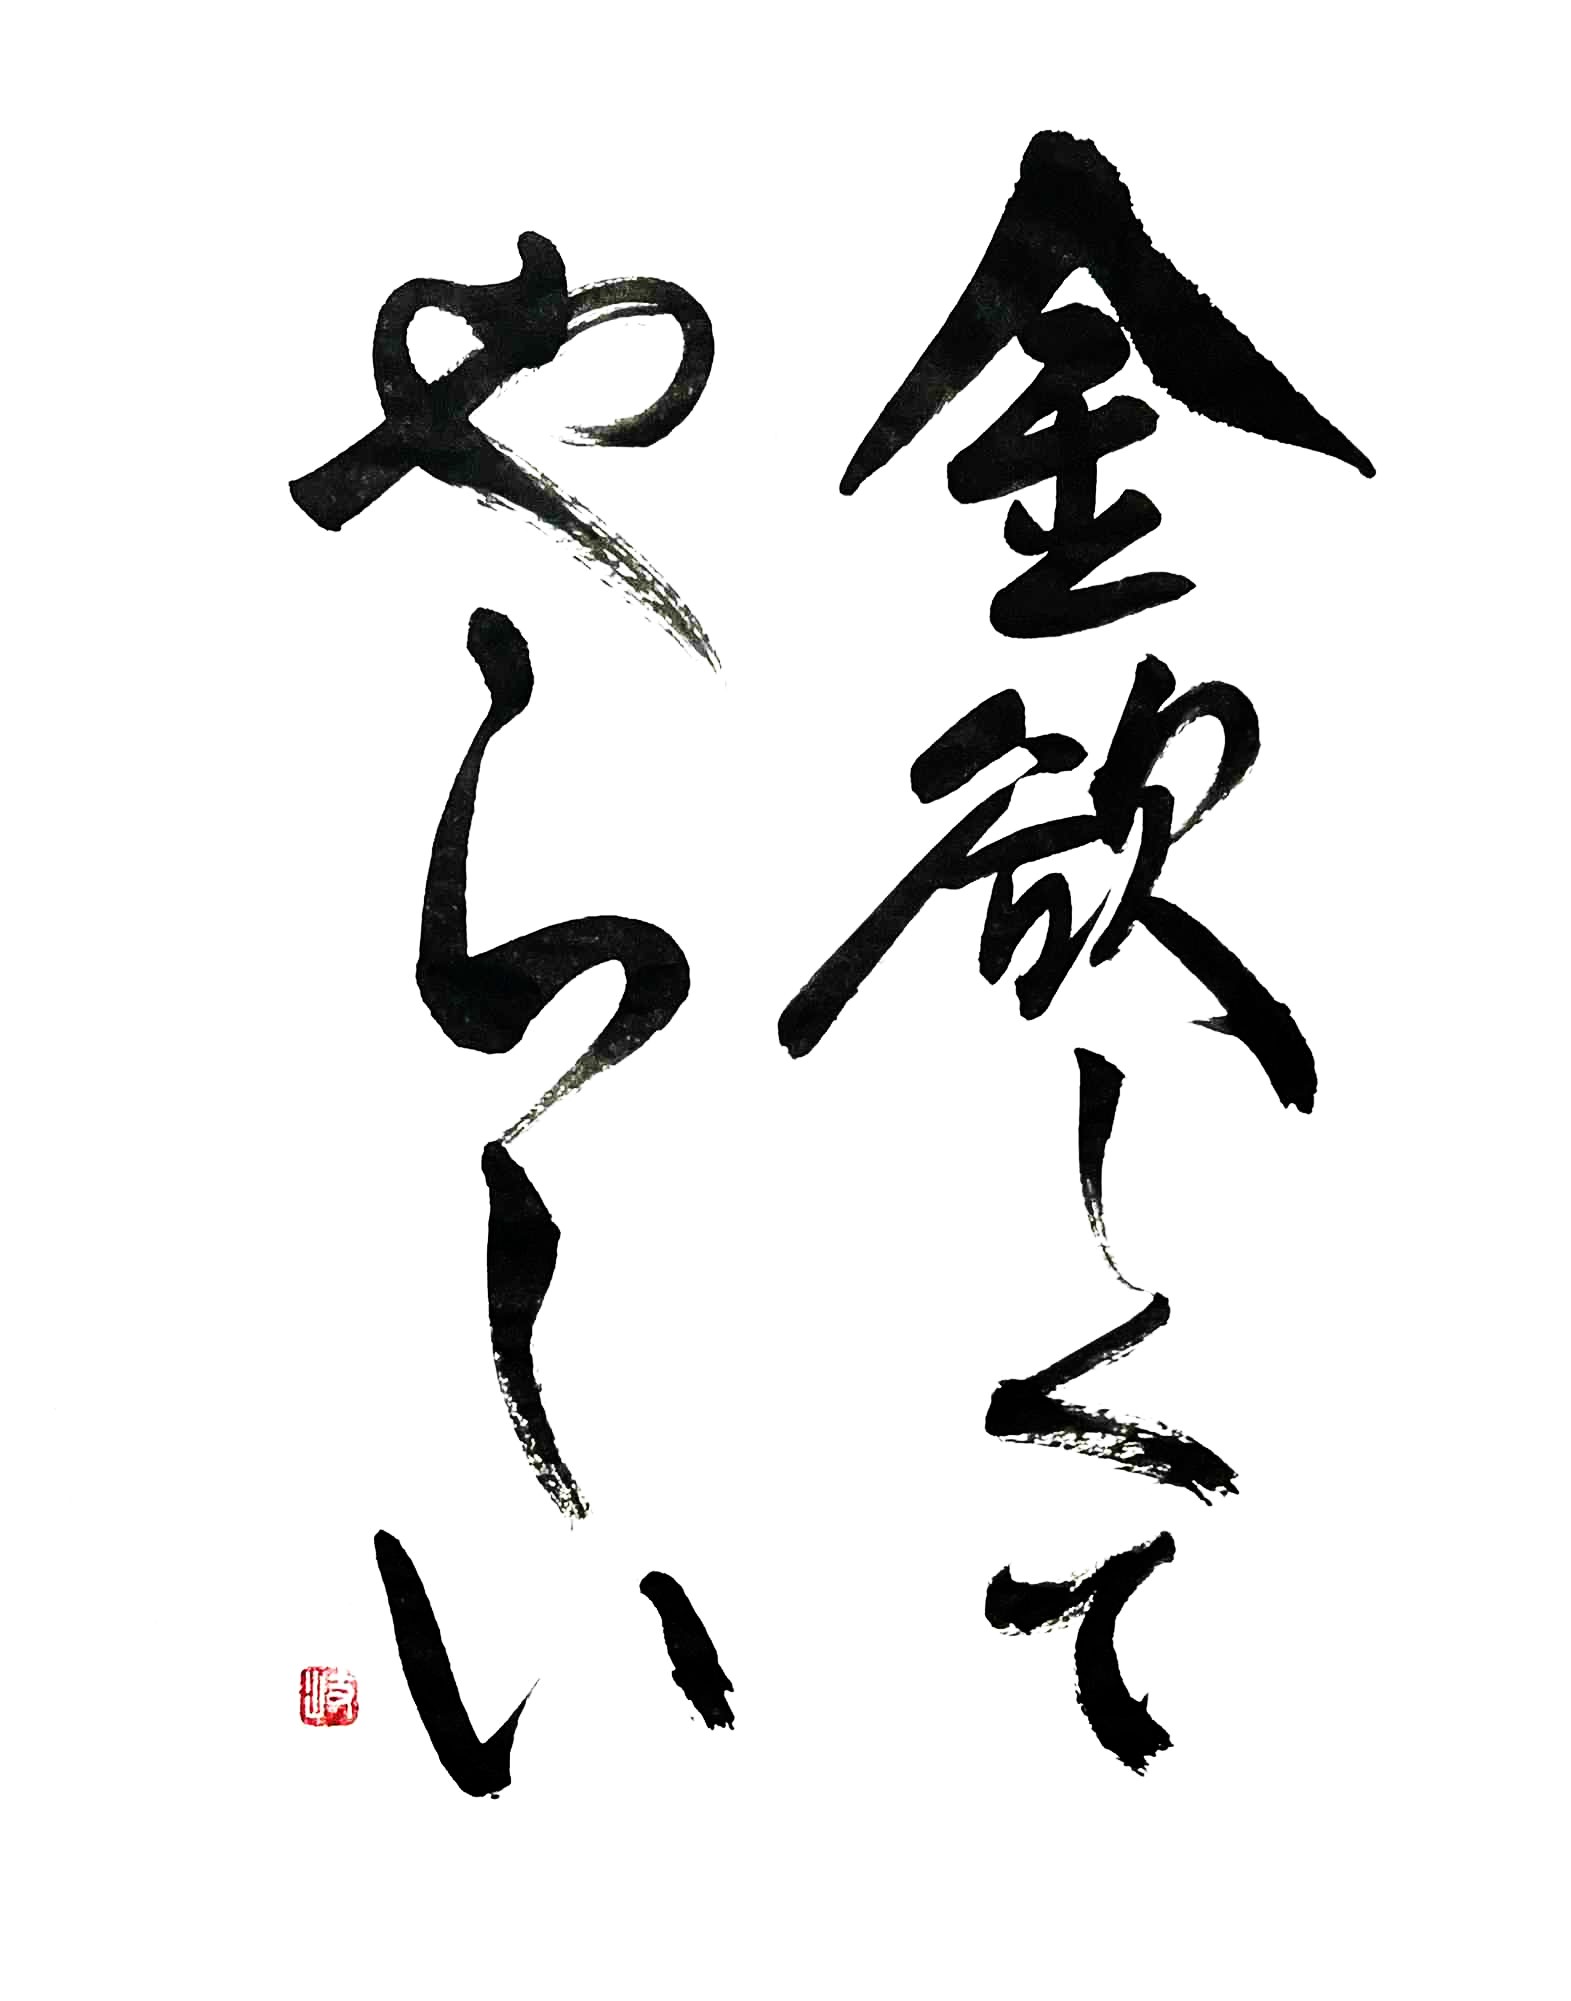 金欲しくて
やらしい
岐